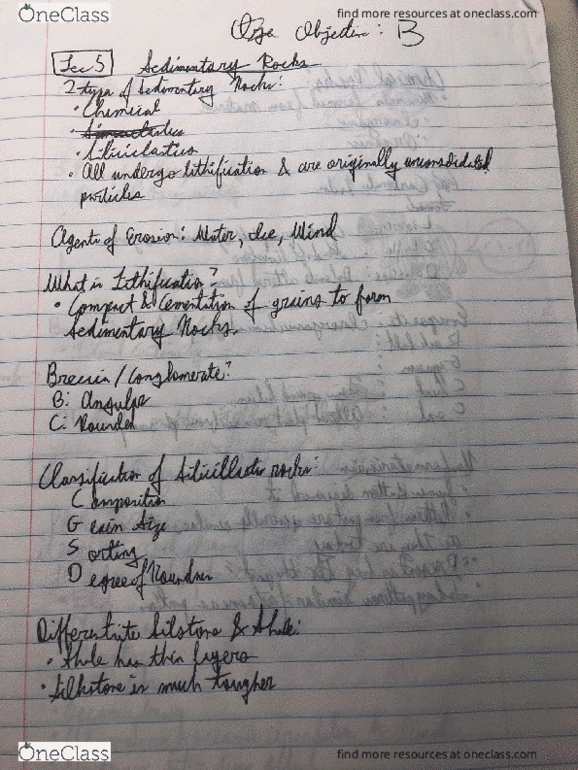 OneClass
find more resources at oneclass.com
Objective: B
Lec 5 Sedimentary Rocks
2 type of Sedimentary Rocks:
• Chemical
• Siliciclastics
• All undergo lithification & are originally unconsolidated
particles
Agents of Erosion: Water, Ice, Wind
What is Lithification?
• Compact & Cementation of grains to form
Sedimentary Rocks.
Breccia / Conglomerate?
B: Angular
C: Rounded
Classification of Siliciclastic rocks:
Composition
Grain Size
Sorting
Degree of Roundness
Differentiate Silstone & Shale:
• Shale has thin layers
• Silkstone is much tougher
OneClass
find more resources at oneclass.com